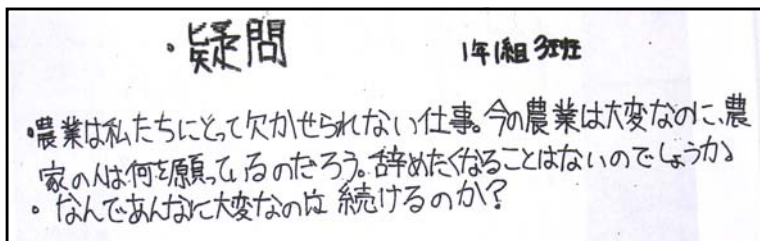 ・疑問 1年1組 3班
・農業は私たちにとって欠かせられない仕事。今の農業は大変なのに、農
家の人は何を願っているのだろう。辞めたくなることはないのでしょうか。
・なんであんなに大変なのに続けるのか？